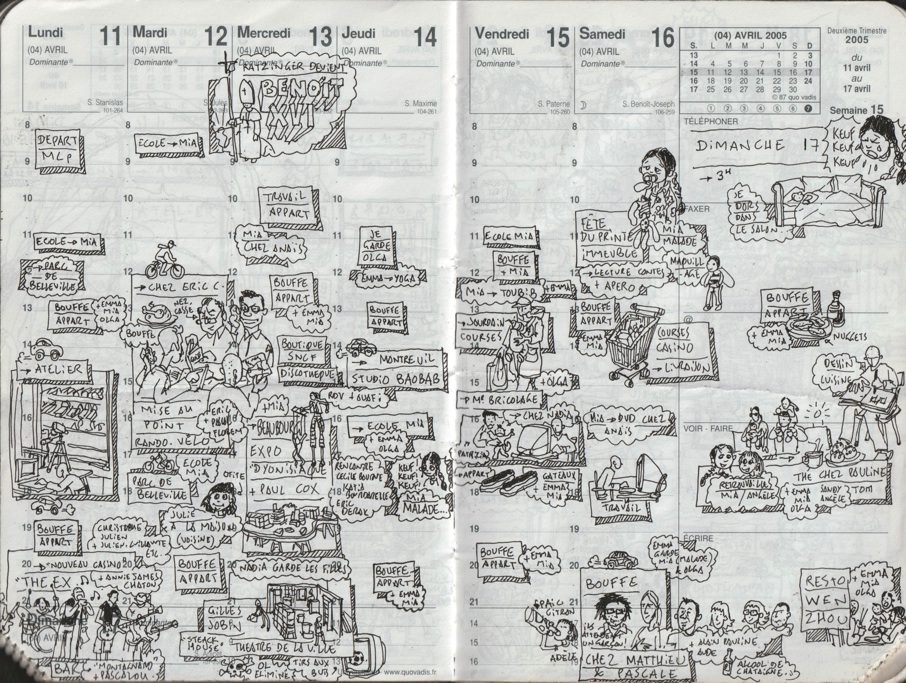 Lundi 11
(04) AVRIL
Dominante
S. Stanislas
101-264
8
DEPART
MLP
9
10
11
ECOLE → MIA
→ PARC
DE
BELLEVILLE
12
13
BOUFFE
APPART
+ EMMA
MIA
OLGA
14
→ ATELIER
BOUFFE
APPART
CHRISTOPHE
JULIEN
ETC.
→ "NOUVEAU CASINO"
+ THE EX
+ ANNIE JAMES
CHATON
BAR
"MONTAGNARD"
+ PASCALOU
Mardi 12
(04) AVRIL
Dominante
8
ECOLE → MIA
9
10
11
12
→ CHEZ ERIC C.
13
NEZ
CASSÉ
BOUFFE
MISE AU
POINT
RANDO. VELO
ECOLE
MIA
PARC DE
BELLEVILLE
OTITE
JULIE
A LA MAISON
(VOISINE)
BOUFFE
APPART
GILLES
JOBIN
STEACK
HOUSE
Mercredi 13
(04) AVRIL
Dominante
RATZINGER DEVIENT
BENOIT
XVI
9
TRAVAIL
APPART
MIA
CHEZ ANAÏS
BOUFFE
APPART
+ EMMA
MIA
BOUTIQUE
SNCF
DISCOTHEQUE
+ MIA
→ BEAUBOURG
EXPO
DIONISIAQUE
+ PAUL COX
NADIA GARDE LES FILLES
THEATRE DE LA VILLE
Jeudi 14
(04) AVRIL
Dominante
S. Maxime
104-261
8
9
10
11
JE
GARDE
OLGA
12
EMMA → YOGA
13
BOUFFE
APPART
14
→ MONTREUIL
STUDIO BAOBAB
→ ECOLE MIA
+ EMMA
OLGA
RENCONTRE
KEUF!
KEUF!
MIA
MALADE...
BOUFFE
APPART
+ EMMA
MIA
www.quovadis.fr
Vendredi 15
(04) AVRIL
Dominante
S. Paterne
105-260
8
9
10
11
ECOLE MIA
BOUFFE
+ MIA
12
MIA → TOUBIB
+ EMMA
13
→ JOURDAIN
COURSES
15
+ OLGA
→ Mr. BRICOLAGE
16
→ CHEZ NADIA
GATEAUX
EMMA
MIA
18
19
20
BOUFFE
APPART
+ EMMA
MIA
21
CITRON
ADELE
Samedi 16
(04) AVRIL
Dominante
S. Benoît-Joseph
106-259
8
9
10
11
FÊTE
DU PRINTEMPS
IMMEUBLE
MIA
MALADE
12
+ LECTURE CONTES
+ APERO
MAQUILLAGE
13
BOUFFE
APPART
+ EMMA
MIA
COURSES
CASINO
→ LIVRAISON
16
MIA → DVD CHEZ
ANAÏS
TRAVAIL
19
20
EMMA
GARDE
MIA (MALADE)
& OLGA
BOUFFE
+ ALAIN PAULINE
AUDE
CHEZ MATTHIEU
& PASCALE
ALCOOL DE
CHATAIGNE.
(04) AVRIL 2005
S. L M M J V S D
13 1 2 3
14 4 5 6 7 8 9 10
15 11 12 13 14 15 16 17
16 18 19 20 21 22 23 24
17 25 26 27 28 29 30
© 87 quo vadis
Deuxième Trimestre
2005
du
11 avril
au
17 avril
Semaine 15
TÉLÉPHONER
DIMANCHE 17
→ 3H
KEUF
KEUF
KEUF!
FAXER
JE
DORS
DANS
LE SALON.
@
BOUFFE
APPART
+ EMMA
MIA
NUGGETS
DESSIN
CUISINE
VOIR - FAIRE
RETROUVAILLES
MIA ANGÈLE
THE CHEZ PAULINE
+ EMMA
MIA
OLGA
SANDY TOM
ANGÈLE
ÉCRIRE
RESTO
WEN
ZHOU
+ EMMA
MIA
OLGA